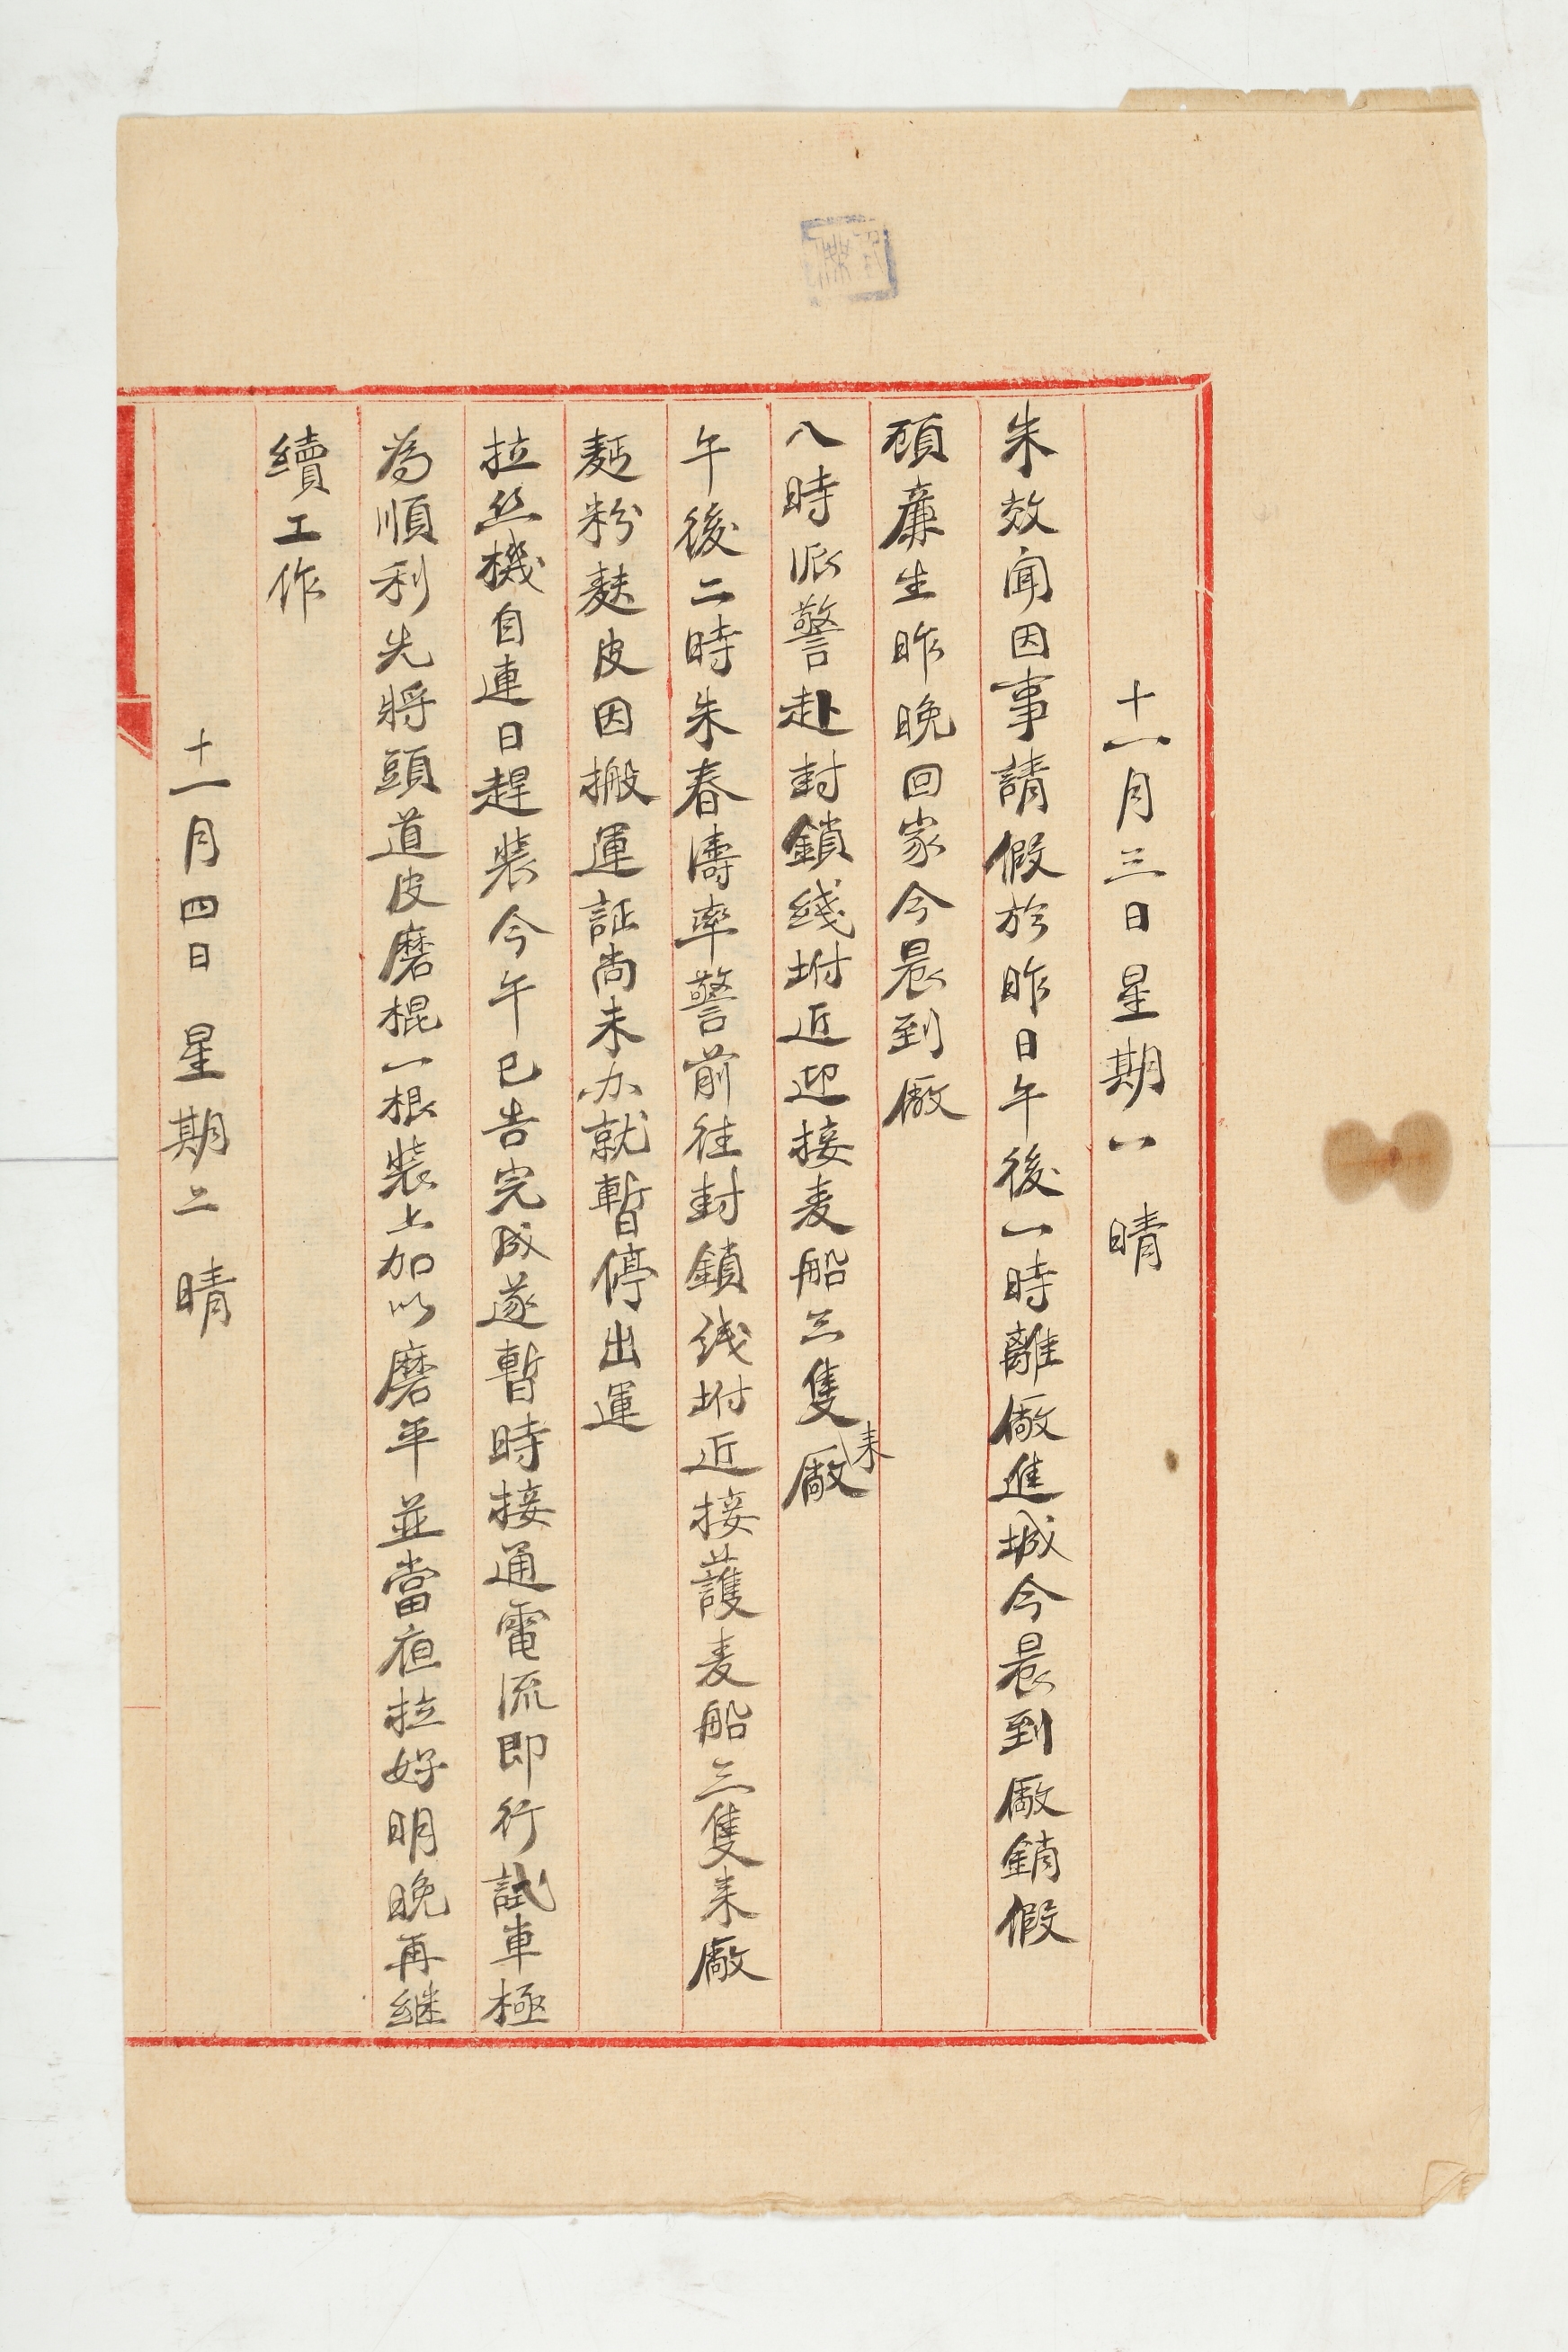 十一月三日星期一 晴
朱效闻因事請假於昨日午後一時離廠進城今晨到廠銷假
顧廉生昨晚回家今晨到廠
八時派警赴封鎖綫坿近迎接麦船三隻来廠
午後二時朱春濤率警前往封鎖线坿近接護麦船三隻来廠
麫粉麩皮因搬運証尚未办就暫停出運
拉丝機自連日趕裝今午已告完成遂暫時接通電流即行試車極
為順利先將頭道皮磨棍一根裝上加以磨平並當夜拉好明晚再继
續工作
十一月四日 星期二 晴